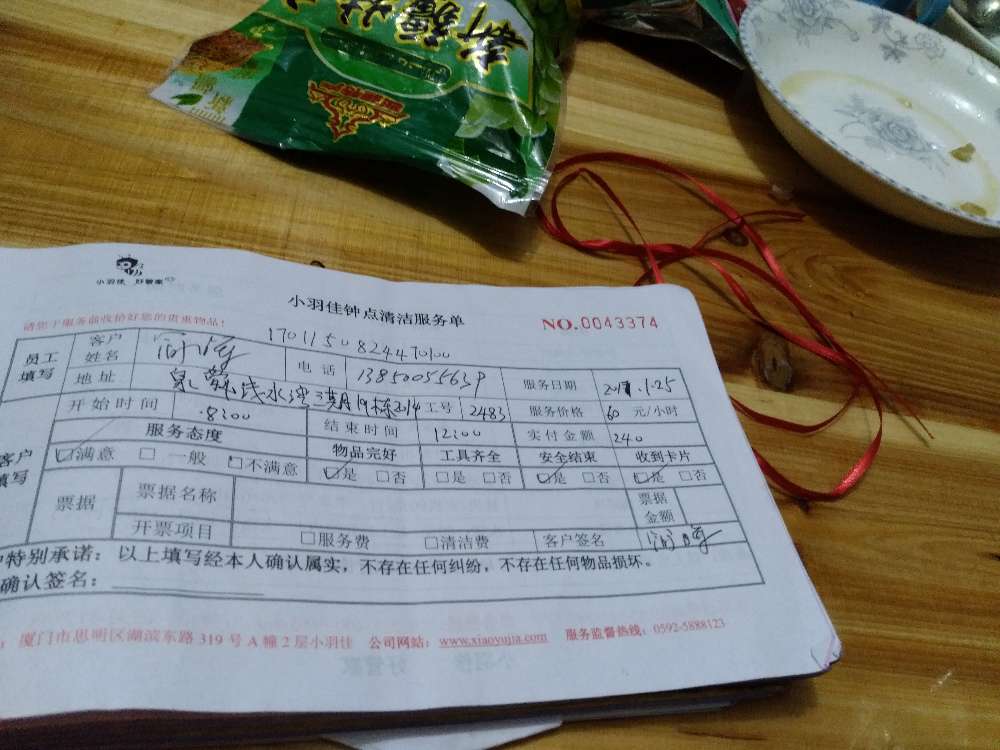 新疆
小羽佳 好管家
小羽佳钟点清洁服务单
NO.0043374
请您于服务前收拾好您的贵重物品!
1701150824470100
员工填写 客户姓名 电话 13850055639 服务日期 2017.1.25
地址 3期19栋2014 工号 2483 服务价格 60 元/小时
开始时间 8:00 结束时间 12:00 实付金额 240
客户填写 服务态度 物品完好 工具齐全 安全结束 收到卡片
☑满意 □一般 □不满意 ☑是 □否 □是 □否 ☑是 □否 ☑是 □否
票据 票据名称 票据金额
开票项目 □服务费 □清洁费 客户签名
特别承诺：以上填写经本人确认属实，不存在任何纠纷，不存在任何物品损坏。
确认签名：
厦门市思明区湖滨东路 319 号 A 幢 2 层小羽佳 公司网站：www.xiaoyujia.com 服务监督热线：0592-5888123